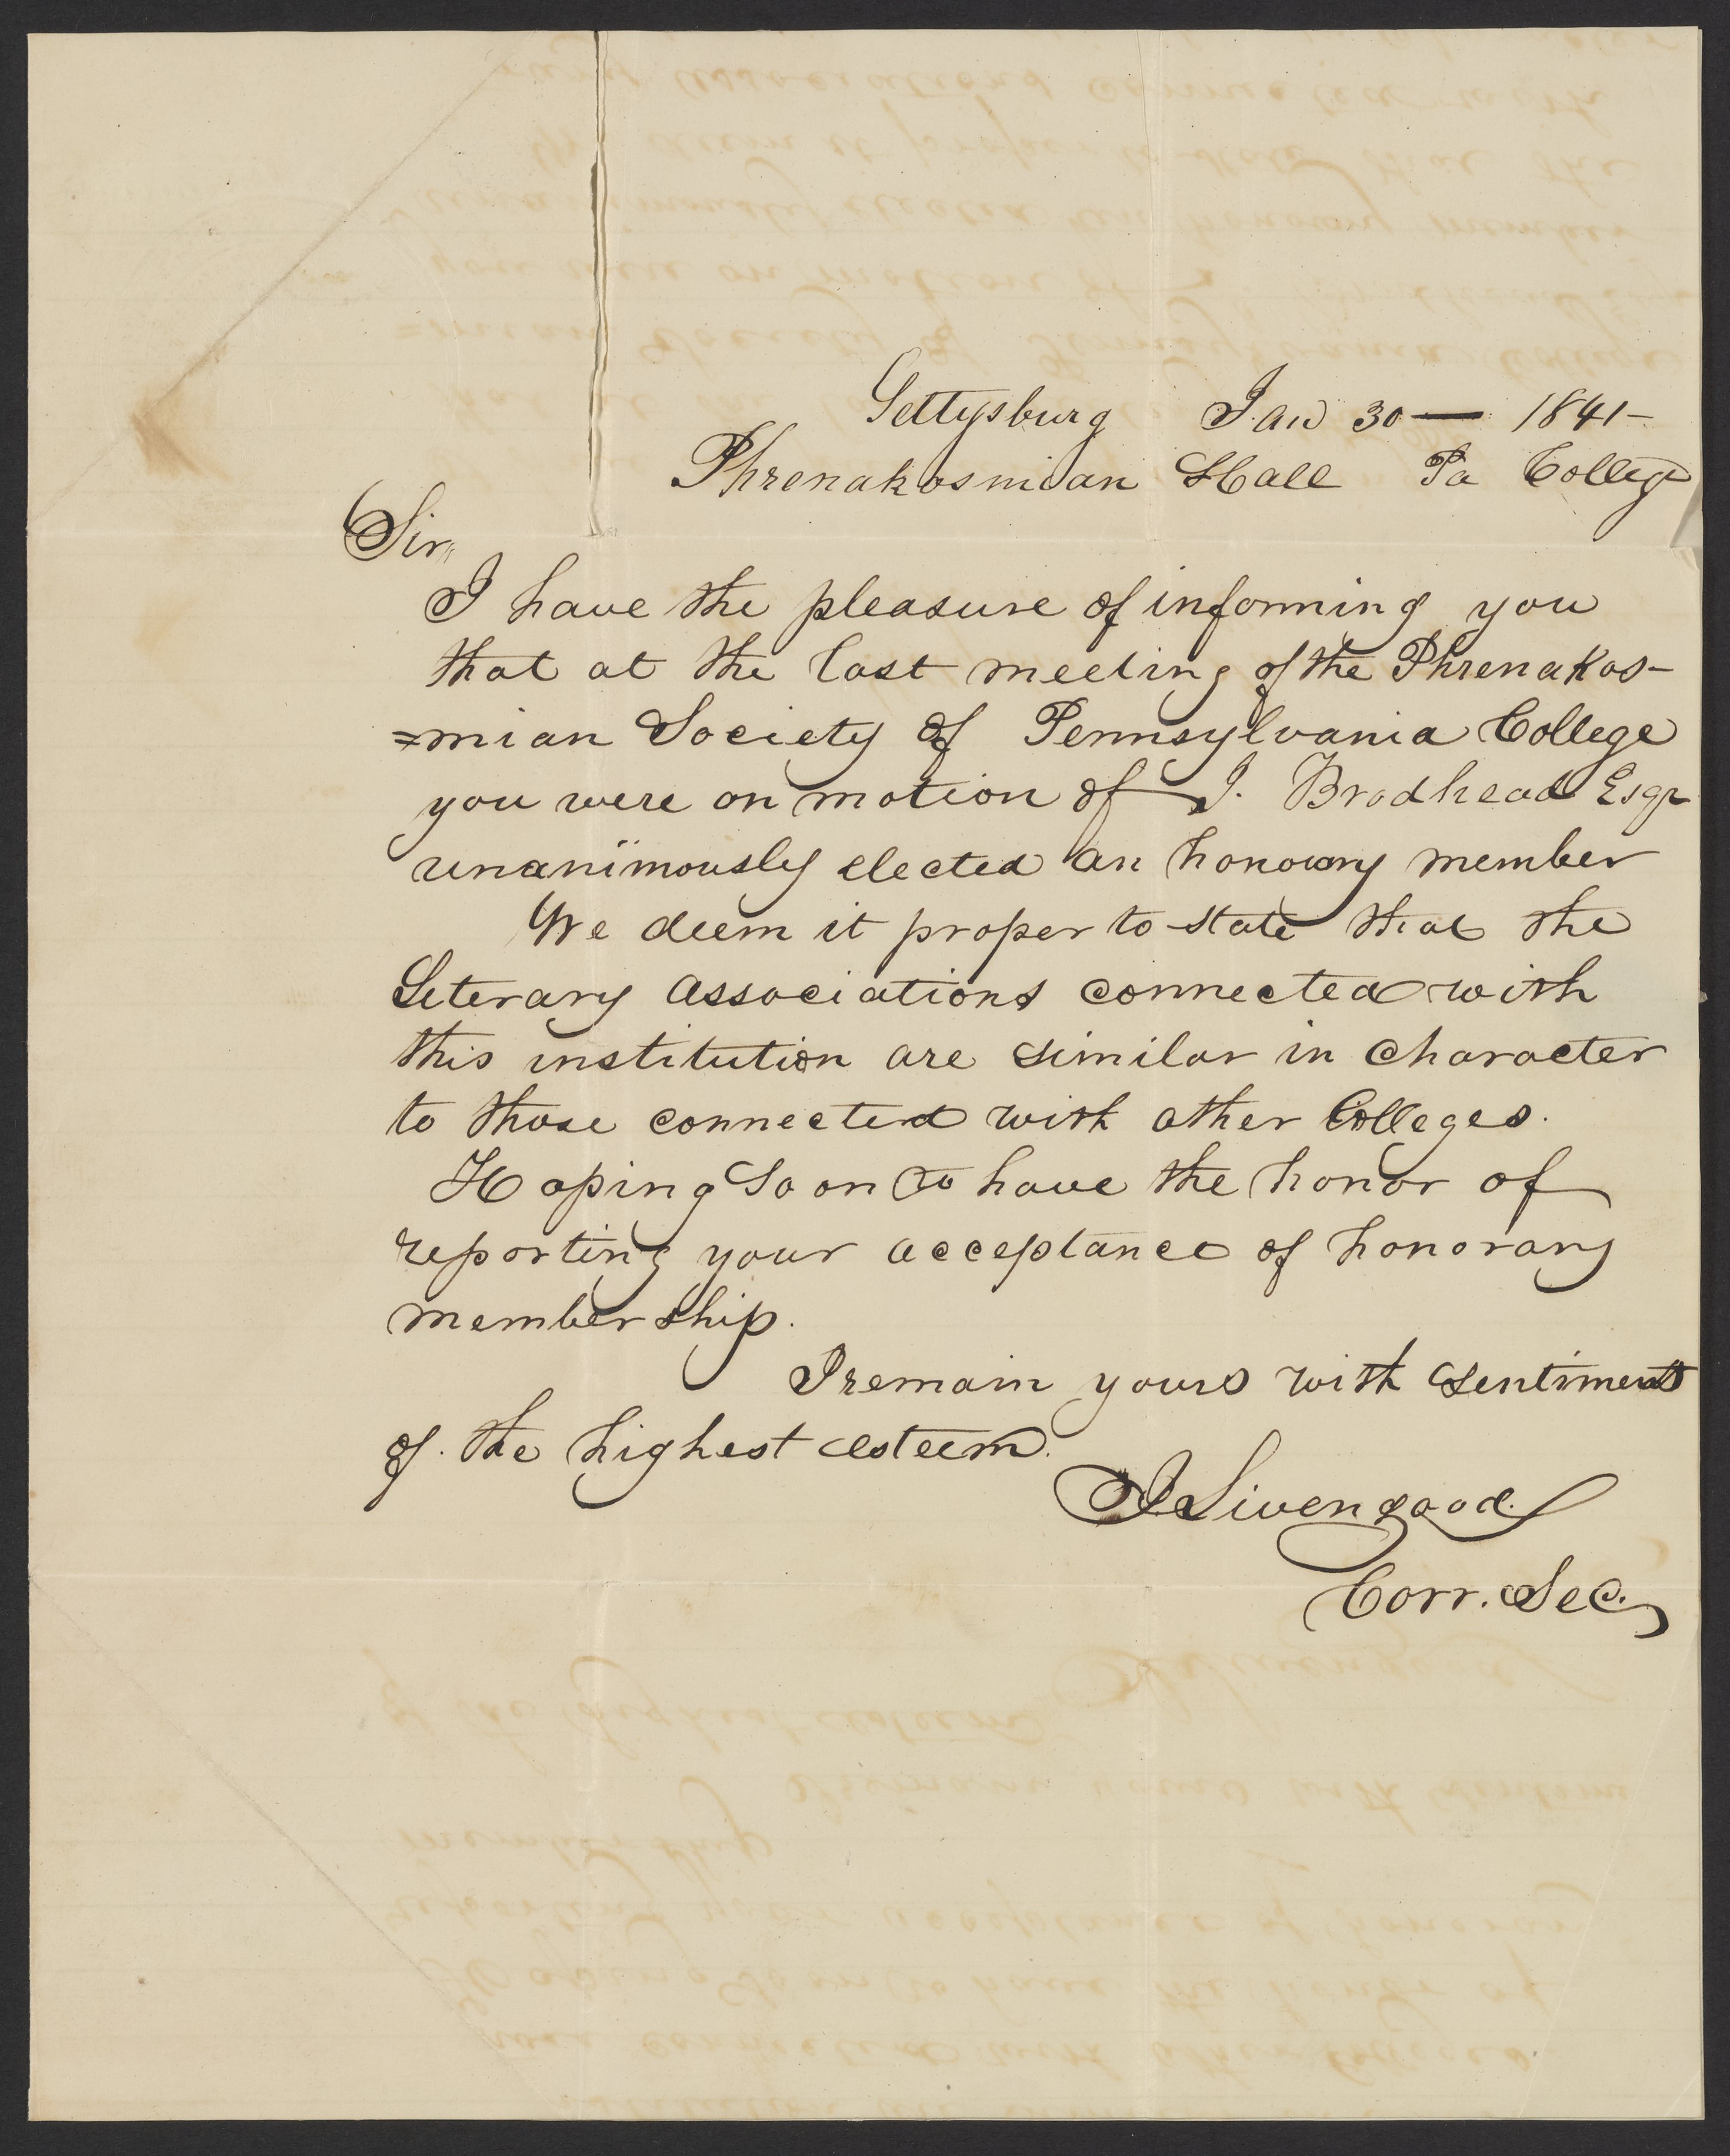 Gettysburg Jan 30 — 1841 —
Phrenakosmian Hall Pa College
Sir,
I have the pleasure of informing you
that at the last meeting of the Phrenakos-
=mian Society of Pennsylvania College
you were on motion of J. Brodhead Esqr
unanimously elected an honorary member
We deem it proper to state that the
Literary Associations connected with
this institution are similar in character
to those connected with other Colleges.
Hoping soon to have the honor of
reporting your acceptance of honorary
membership.
I remain yours with sentiments
of the highest esteem.
J Livengood
Corr. Sec.